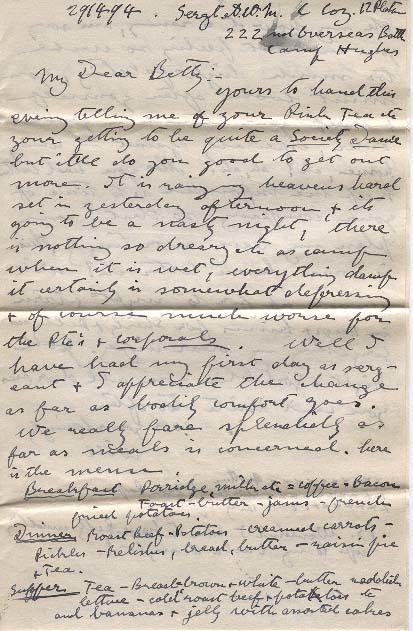 291494. Sergt. D.W.M. C Coy. 12 Platn
222nd Overseas Batt
Camp Hughes
My Dear Betty:-
yours to hand this
evening telling me of your Pink Tea etc
your getting to be quite a Society Dame
but it'll do you good to get out
more. It is raining heavens hard
set in yesterday afternoon & its
going to be a nasty night, there
is nothing so dreary etc as camp
when it is wet, everything damp
it certainly is somewhat depressing
& of course much worse for
the Pte's & corporals. Well I
have had my first day as serg-
eant & I appreciate the change
as far as bodily comfort goes.
We really fare splendidly as
far as meals is concerned. here
is the menu.
Breakfast Porridge, milk etc = coffee = Bacon
Toast - butter - jams - french
fried potatoes.
Dinner Roast beef = Potatoes - creamed carrots -
Pickles - Relishes, bread, butter - raisin pie
& Tea.
Supper Tea - Bread = brown & white - butter raddish
lettuce - cold roast beef & potatoes etc
and bananas & jelly with assorted cakes